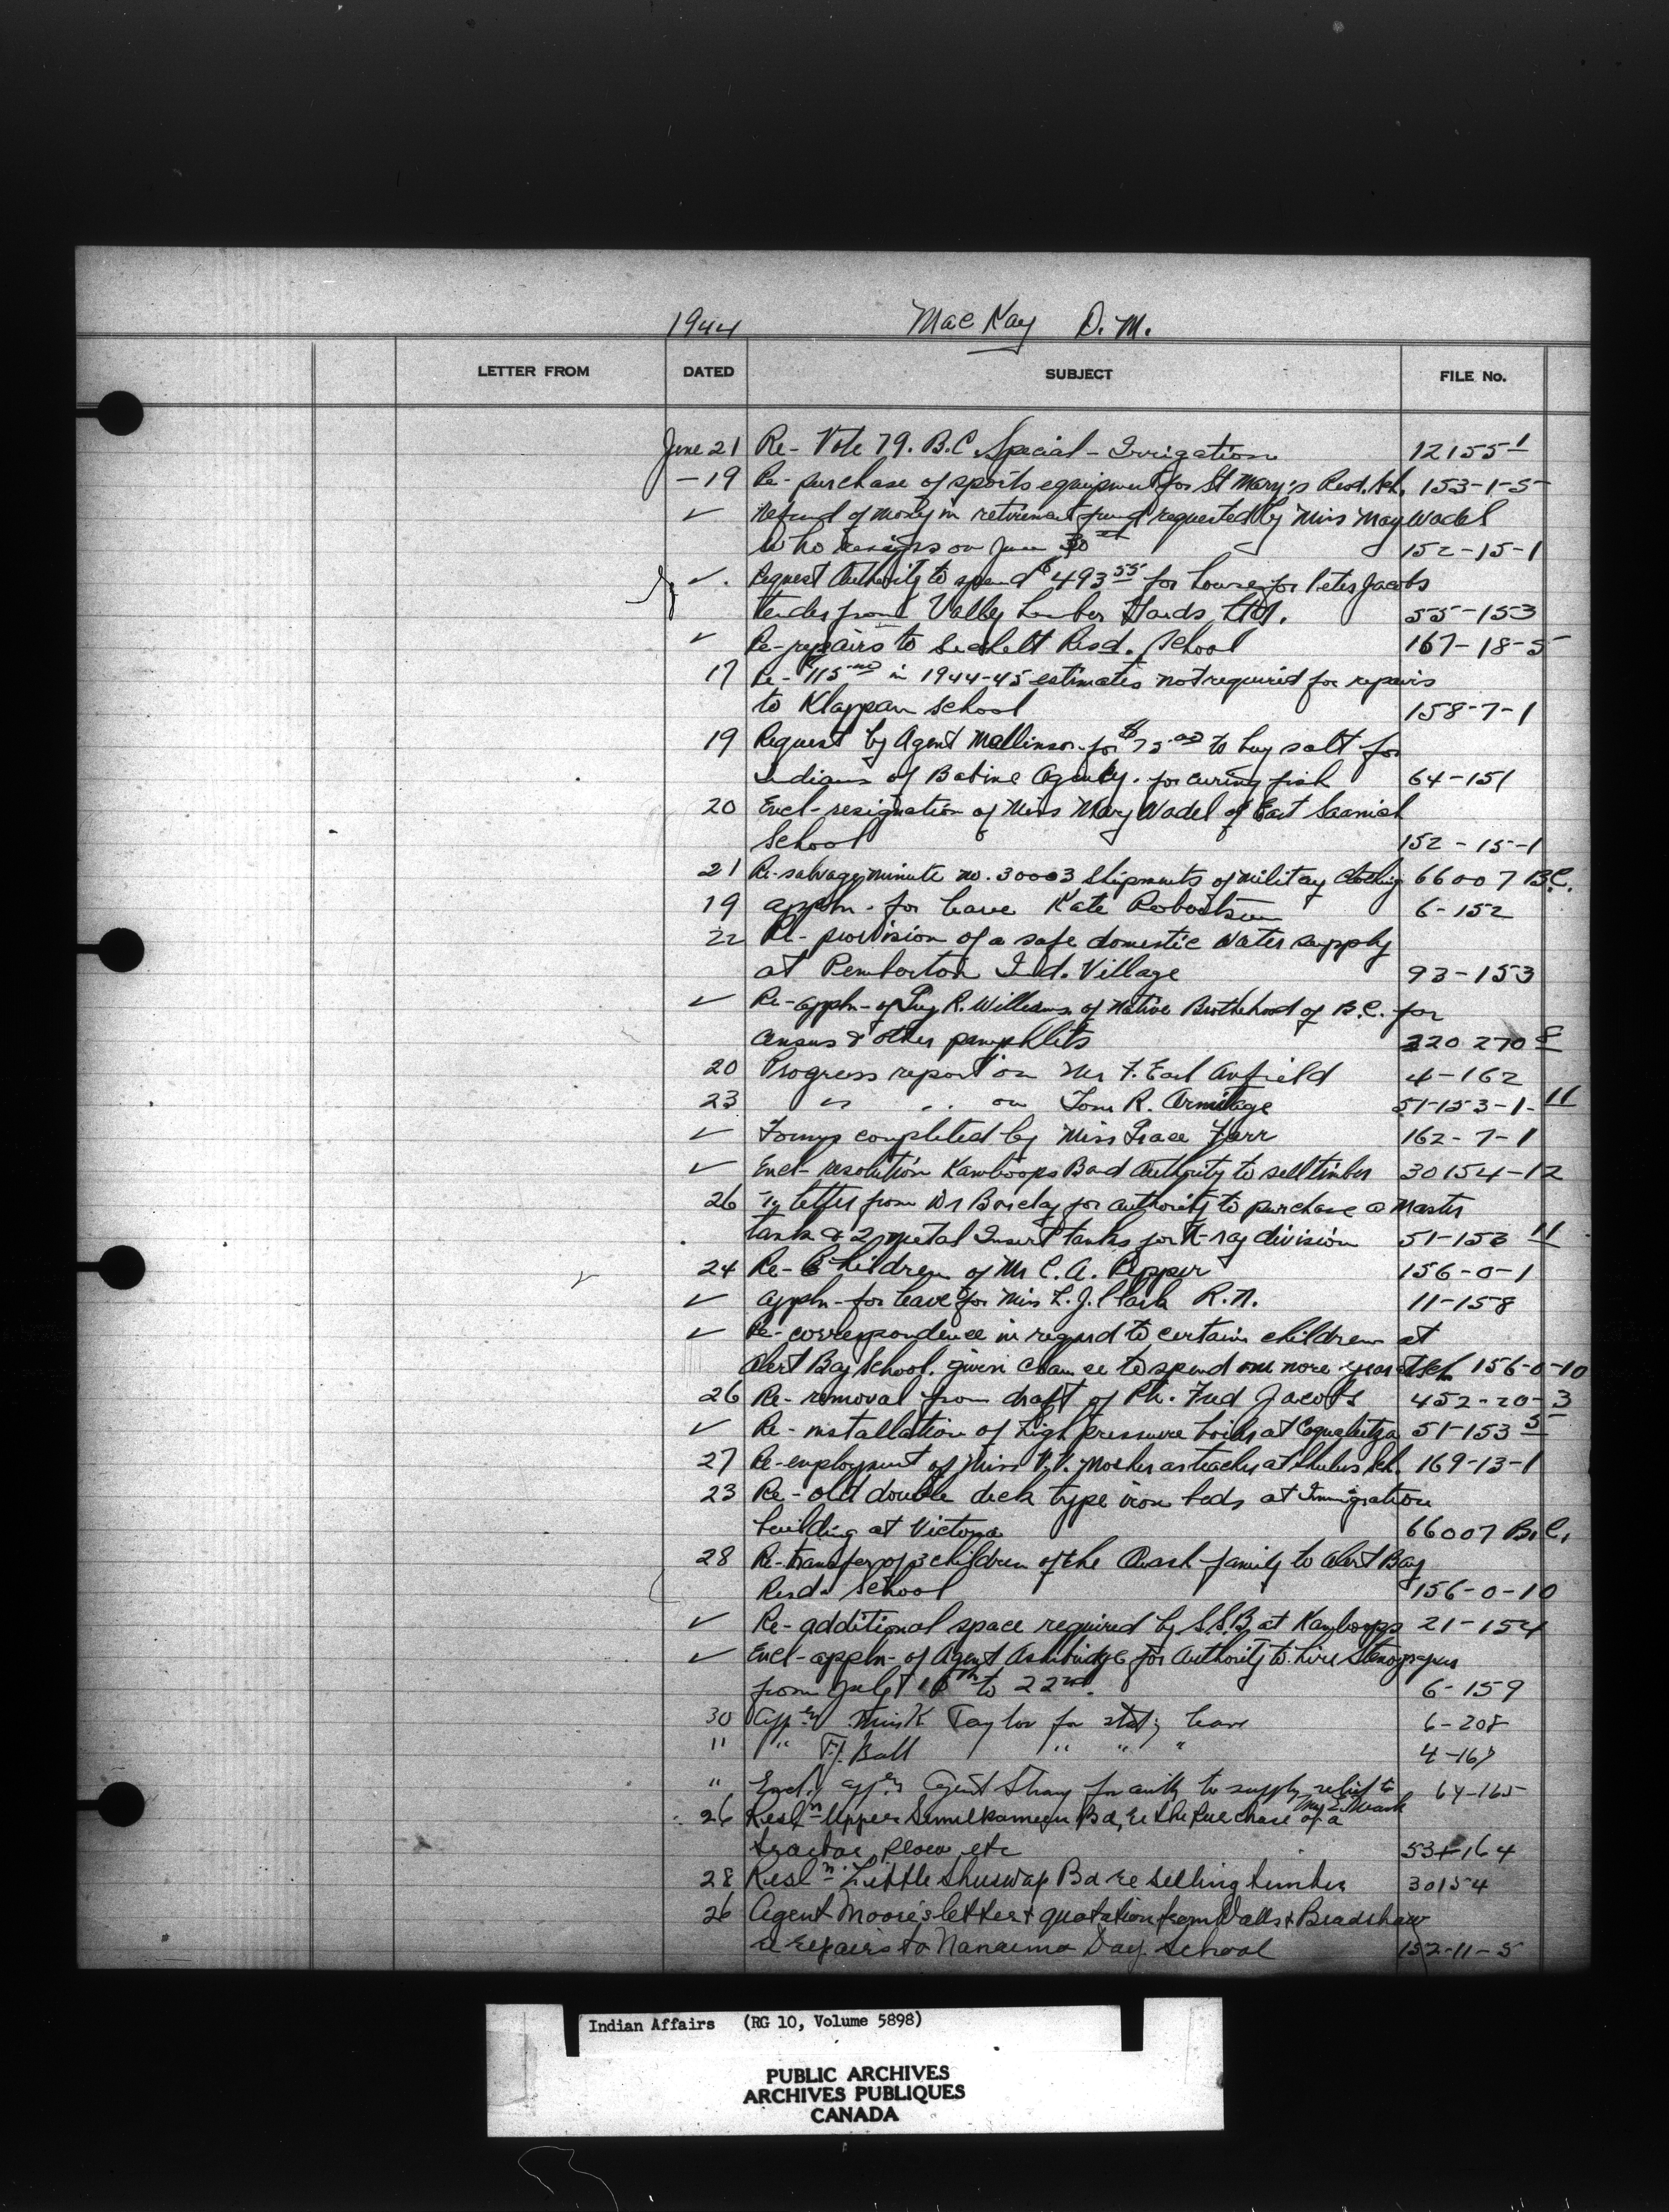 1944 MacKay D. M.
LETTER FROM DATED SUBJECT FILE No.
June 21 Re- Vote 79. B.C. Special - Irrigation 12155-1
- 19 Re- purchase of sports equipment for St Mary's Resd. Sch. 153-1-5
✓ Refund of money in retirement fund requested by Miss May Wadel
who resigns on June 30th 152-15-1
✓. Request Authority to spend $493.55 for house for Peter Jacobs
tender from Valley Lumber Yards Ltd. 55-153
✓ Re- repairs to Sechelt Resd. School 167-18-5
17 Re- $115.00 in 1944-45 estimates not required for repairs
to Klappan school 158-7-1
19 Request by Agent Mallinson for $75.00 to buy salt for
Indians of Babine Agency. for curing fish 64-151
20 Encl- resignation of Miss Mary Wadel of East Saanich
School 152-15-1
21 Re- salvage minute no. 30003 shipments of military clothing 66007 B.C.
19 appln- for leave Kate Robertson 6-152
22 Re- provision of a safe domestic water supply
at Pemberton Ind. Village 93-153
✓ Re- appln- of Guy R. Williams of Native Brotherhood of B.C. for
census & other pamphlets 220 270 8
20 Progress report on Mr F. Earl Anfield 4-162
23 " " on Tom R. Armitage 51-153-1-11
✓ Forms completed by Miss Grace Farr 162-7-1
✓ Encl- resolution Kamloops Band Authority to sell timber 30154-12
26 letter from Dr Barclay for authority to purchase a master
tank & 2 metal Insert tanks for X-ray division 51-153 11
24 Re- Children of Mr C. A. Pepper 156-0-1
✓ appln- for leave for Miss L. J. Clark R.N. 11-158
✓ Re- correspondence in regard to certain children at
Alert Bay School. given chance to spend one more year at sch 156-0-10
26 Re- removal from draft of Pte. Fred Jacobs 452-20-3
✓ Re- installation of high pressure boiler at Coqualeetza 51-153 5
27 Re- employment of Miss V. V. Mosher as teacher at Shulus Sch. 169-13-1
23 Re- old double deck type iron beds at Immigration
building at Victoria 66007 B.C.
28 Re- transfer of 3 children of the Quash family to Alert Bay
Resd. School 156-0-10
✓ Re- additional space required by S.S.B. at Kamloops 21-154
✓ Encl- appln- of Agent Ashbridge for authority to hire Stenographer
from July to 22nd. 6-159
30 Miss K Taylor for leave 6-208
" " F.J. Ball " " " 4-167
" Encl'g Agent Strang for auth to supply relief to 64-165
26 Resln Upper Similkameen Bd, re the purchase of a
tractor, plow etc 53-164
28 Resln Little Shuswap Bd re selling timber 30154
26 Agent Moore's letter & quotation from Walls & Bradshaw
re repairs to Nanaimo Day School 152-11-5
Indian Affairs (RG 10, Volume 5898)
PUBLIC ARCHIVES
ARCHIVES PUBLIQUES
CANADA